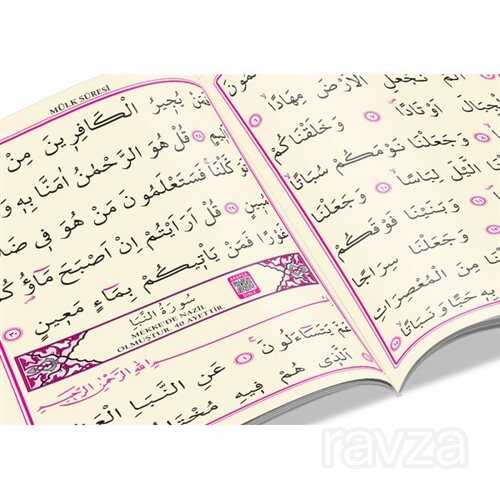 MÜLK SÛRESİ
فَمَنْ يُج۪يرُ الْكَافِر۪ينَ مِنْ
قُلْ هُوَ الرَّحْمٰنُ اٰمَنَّا بِه۪ وَ
تَوَكَّلْنَا فَسَتَعْلَمُونَ مَنْ هُوَ ف۪ي
مُب۪ينٍ ﴿٢٩﴾ قُلْ اَرَاَيْتُمْ اِنْ اَصْبَحَ مَٓاؤُ۬كُمْ
غَوْرًا فَمَنْ يَاْت۪يكُمْ بِمَٓاءٍ مَع۪ينٍ ﴿٣٠﴾
سُورَةُ النَّبَأِ
MEKKE'DE NAZİL
OLMUŞTUR. 40 AYETTİR.
بِسْمِ اللّٰهِ الرَّحْمٰنِ الرَّح۪يمِ
عَمَّ يَتَسَٓاءَلُونَ ﴿١﴾ عَنِ النَّبَاِ
الَّذ۪ي هُمْ ف۪يهِ
اَلَمْ نَجْعَلِ الْاَرْضَ مِهَادًا
اَوْتَادًا ﴿٧﴾ وَخَلَقْنَاكُمْ
وَجَعَلْنَا نَوْمَكُمْ سُبَاتًا
الَّيْلَ لِبَاسًا ﴿١٠﴾ وَجَعَلْنَا
وَبَنَيْنَا فَوْقَكُمْ
وَجَعَلْنَا سِرَاجًا
مِنَ الْمُعْصِرَاتِ
بِه۪ حَبًّا وَنَبَاتًا ﴿١٥﴾
ravza